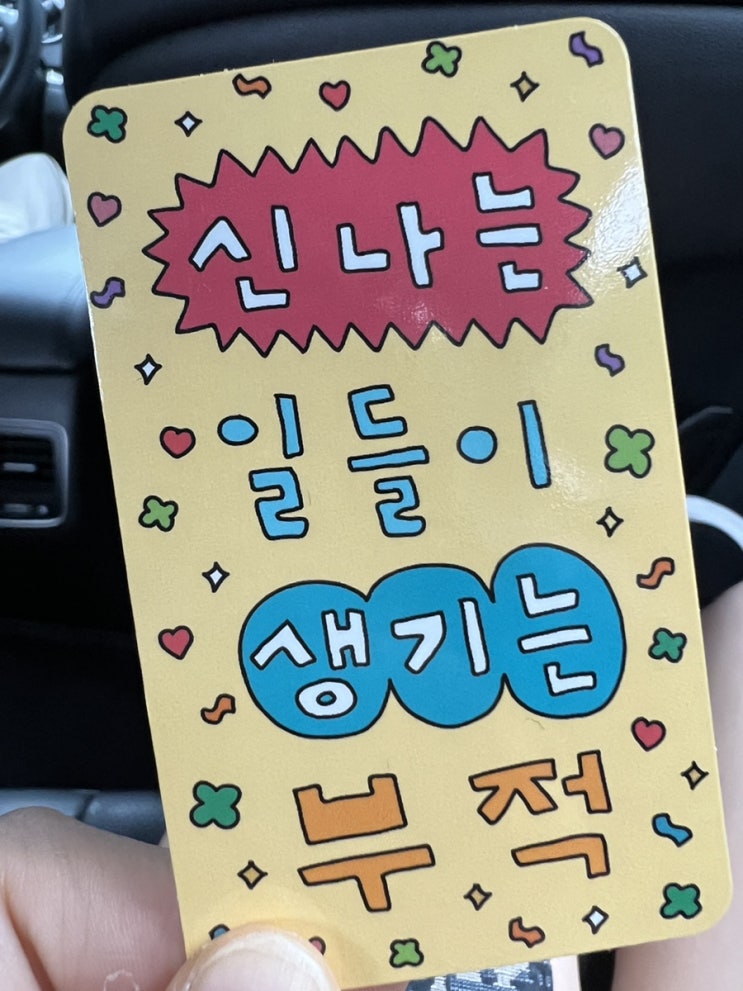 신나는
일들이
생기는
부적